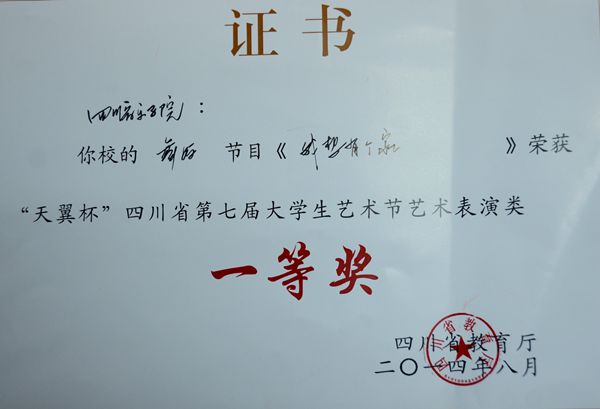 证书
四川音乐学院：
你校的 舞蹈 节目《我想有个家》荣获
“天翼杯”四川省第七届大学生艺术节艺术表演类
一等奖
四川省教育厅
二〇一四年八月